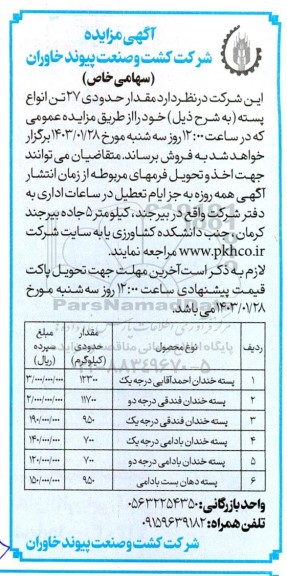 آگهی مزایده
شرکت کشت و صنعت پیوند خاوران
(سهامی خاص)
این شرکت در نظر دارد مقدار حدودی ۲۷ تن انواع
پسته (به شرح ذیل) خود را از طریق مزایده عمومی
که در ساعت ۱۲:۰۰ روز سه شنبه مورخ ۱۴۰۳/۰۱/۲۸ برگزار
خواهد شد به فروش برساند. متقاضیان می توانند
جهت اخذ و تحویل فرمهای مربوطه از زمان انتشار
آگهی همه روزه به جز ایام تعطیل در ساعات اداری به
دفتر شرکت واقع در بیرجند، کیلومتر ۵ جاده بیرجند
کرمان، جنب دانشکده کشاورزی یا به سایت شرکت
www.pkhco.ir مراجعه نمایند.
لازم به ذکر است آخرین مهلت جهت تحویل پاکت
قیمت پیشنهادی ساعت ۱۲:۰۰ روز سه شنبه مورخ
۱۴۰۳/۰۱/۲۸ می باشد.
ParsNamadData
ردیف نوع محصول مقدار حدودی (کیلوگرم) مبلغ سپرده (ریال)
۱ پسته خندان احمدآقایی درجه یک ۱۲۳۰۰ ۳/۰۰۰/۰۰۰/۰۰۰
۲ پسته خندان فندقی درجه دو ۱۱۷۰۰ ۲/۰۰۰/۰۰۰/۰۰۰
۳ پسته خندان فندقی درجه یک ۹۵۰ ۱۹۰/۰۰۰/۰۰۰
۴ پسته خندان بادامی درجه یک ۷۰۰ ۱۴۰/۰۰۰/۰۰۰
۵ پسته خندان بادامی درجه دو ۷۰۰ ۱۲۰/۰۰۰/۰۰۰
۶ پسته دهان بست بادامی ۹۵۰ ۱۵۰/۰۰۰/۰۰۰
واحد بازرگانی: ۰۵۶۳۲۲۵۴۳۵۰
تلفن همراه: ۰۹۱۵۹۶۳۹۱۸۲
شرکت کشت و صنعت پیوند خاوران